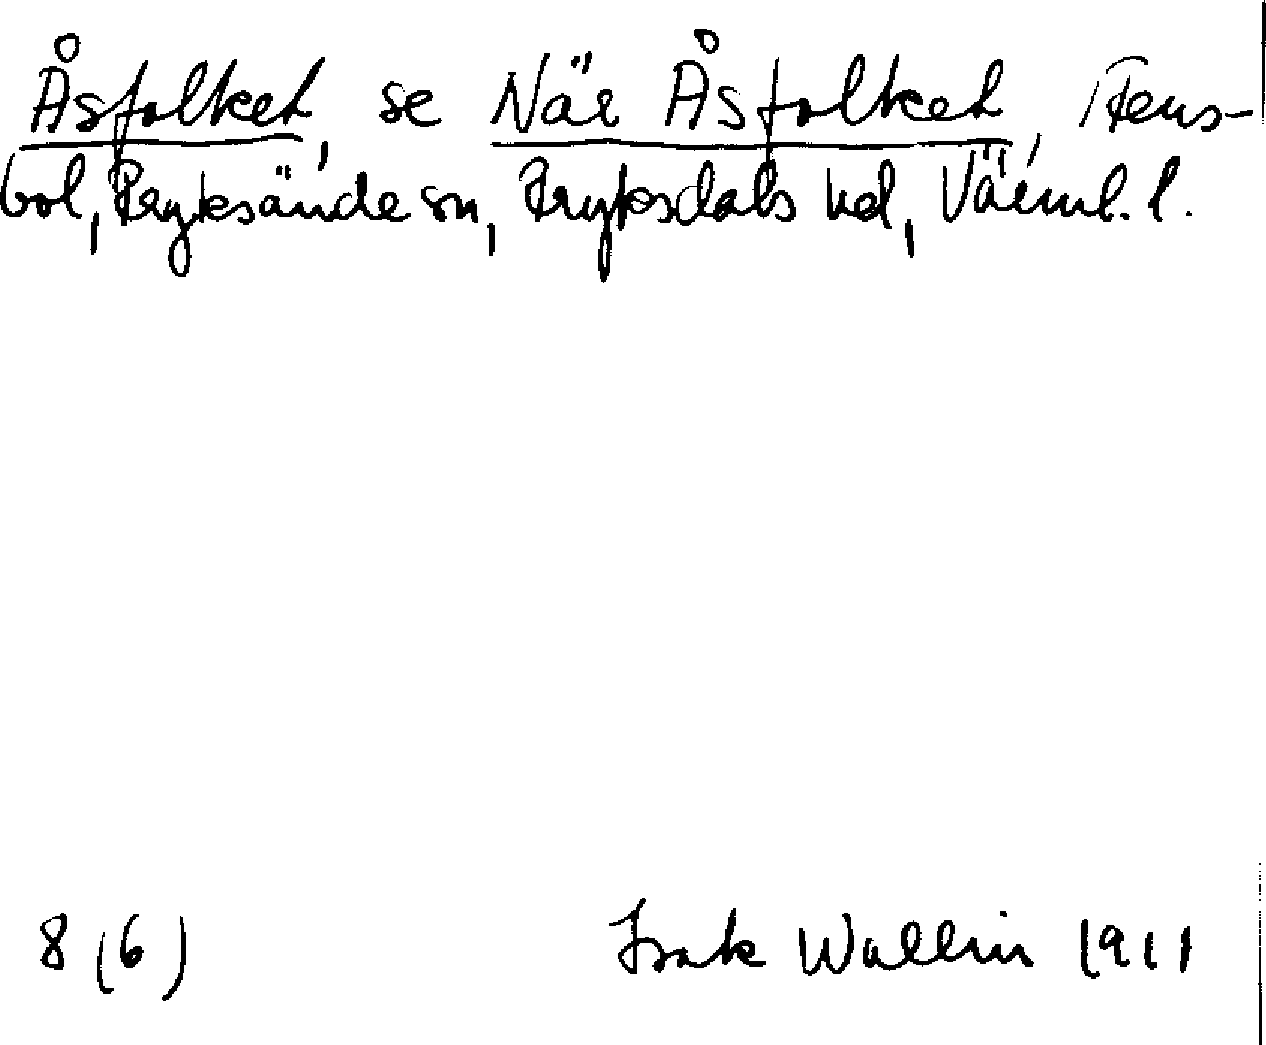 Åsfolket, se När Åsfolket, Stens-
bol, Fryksände sn, Fryksdals hd, Värml. l.
8 (6)
Isak Wallin 1911